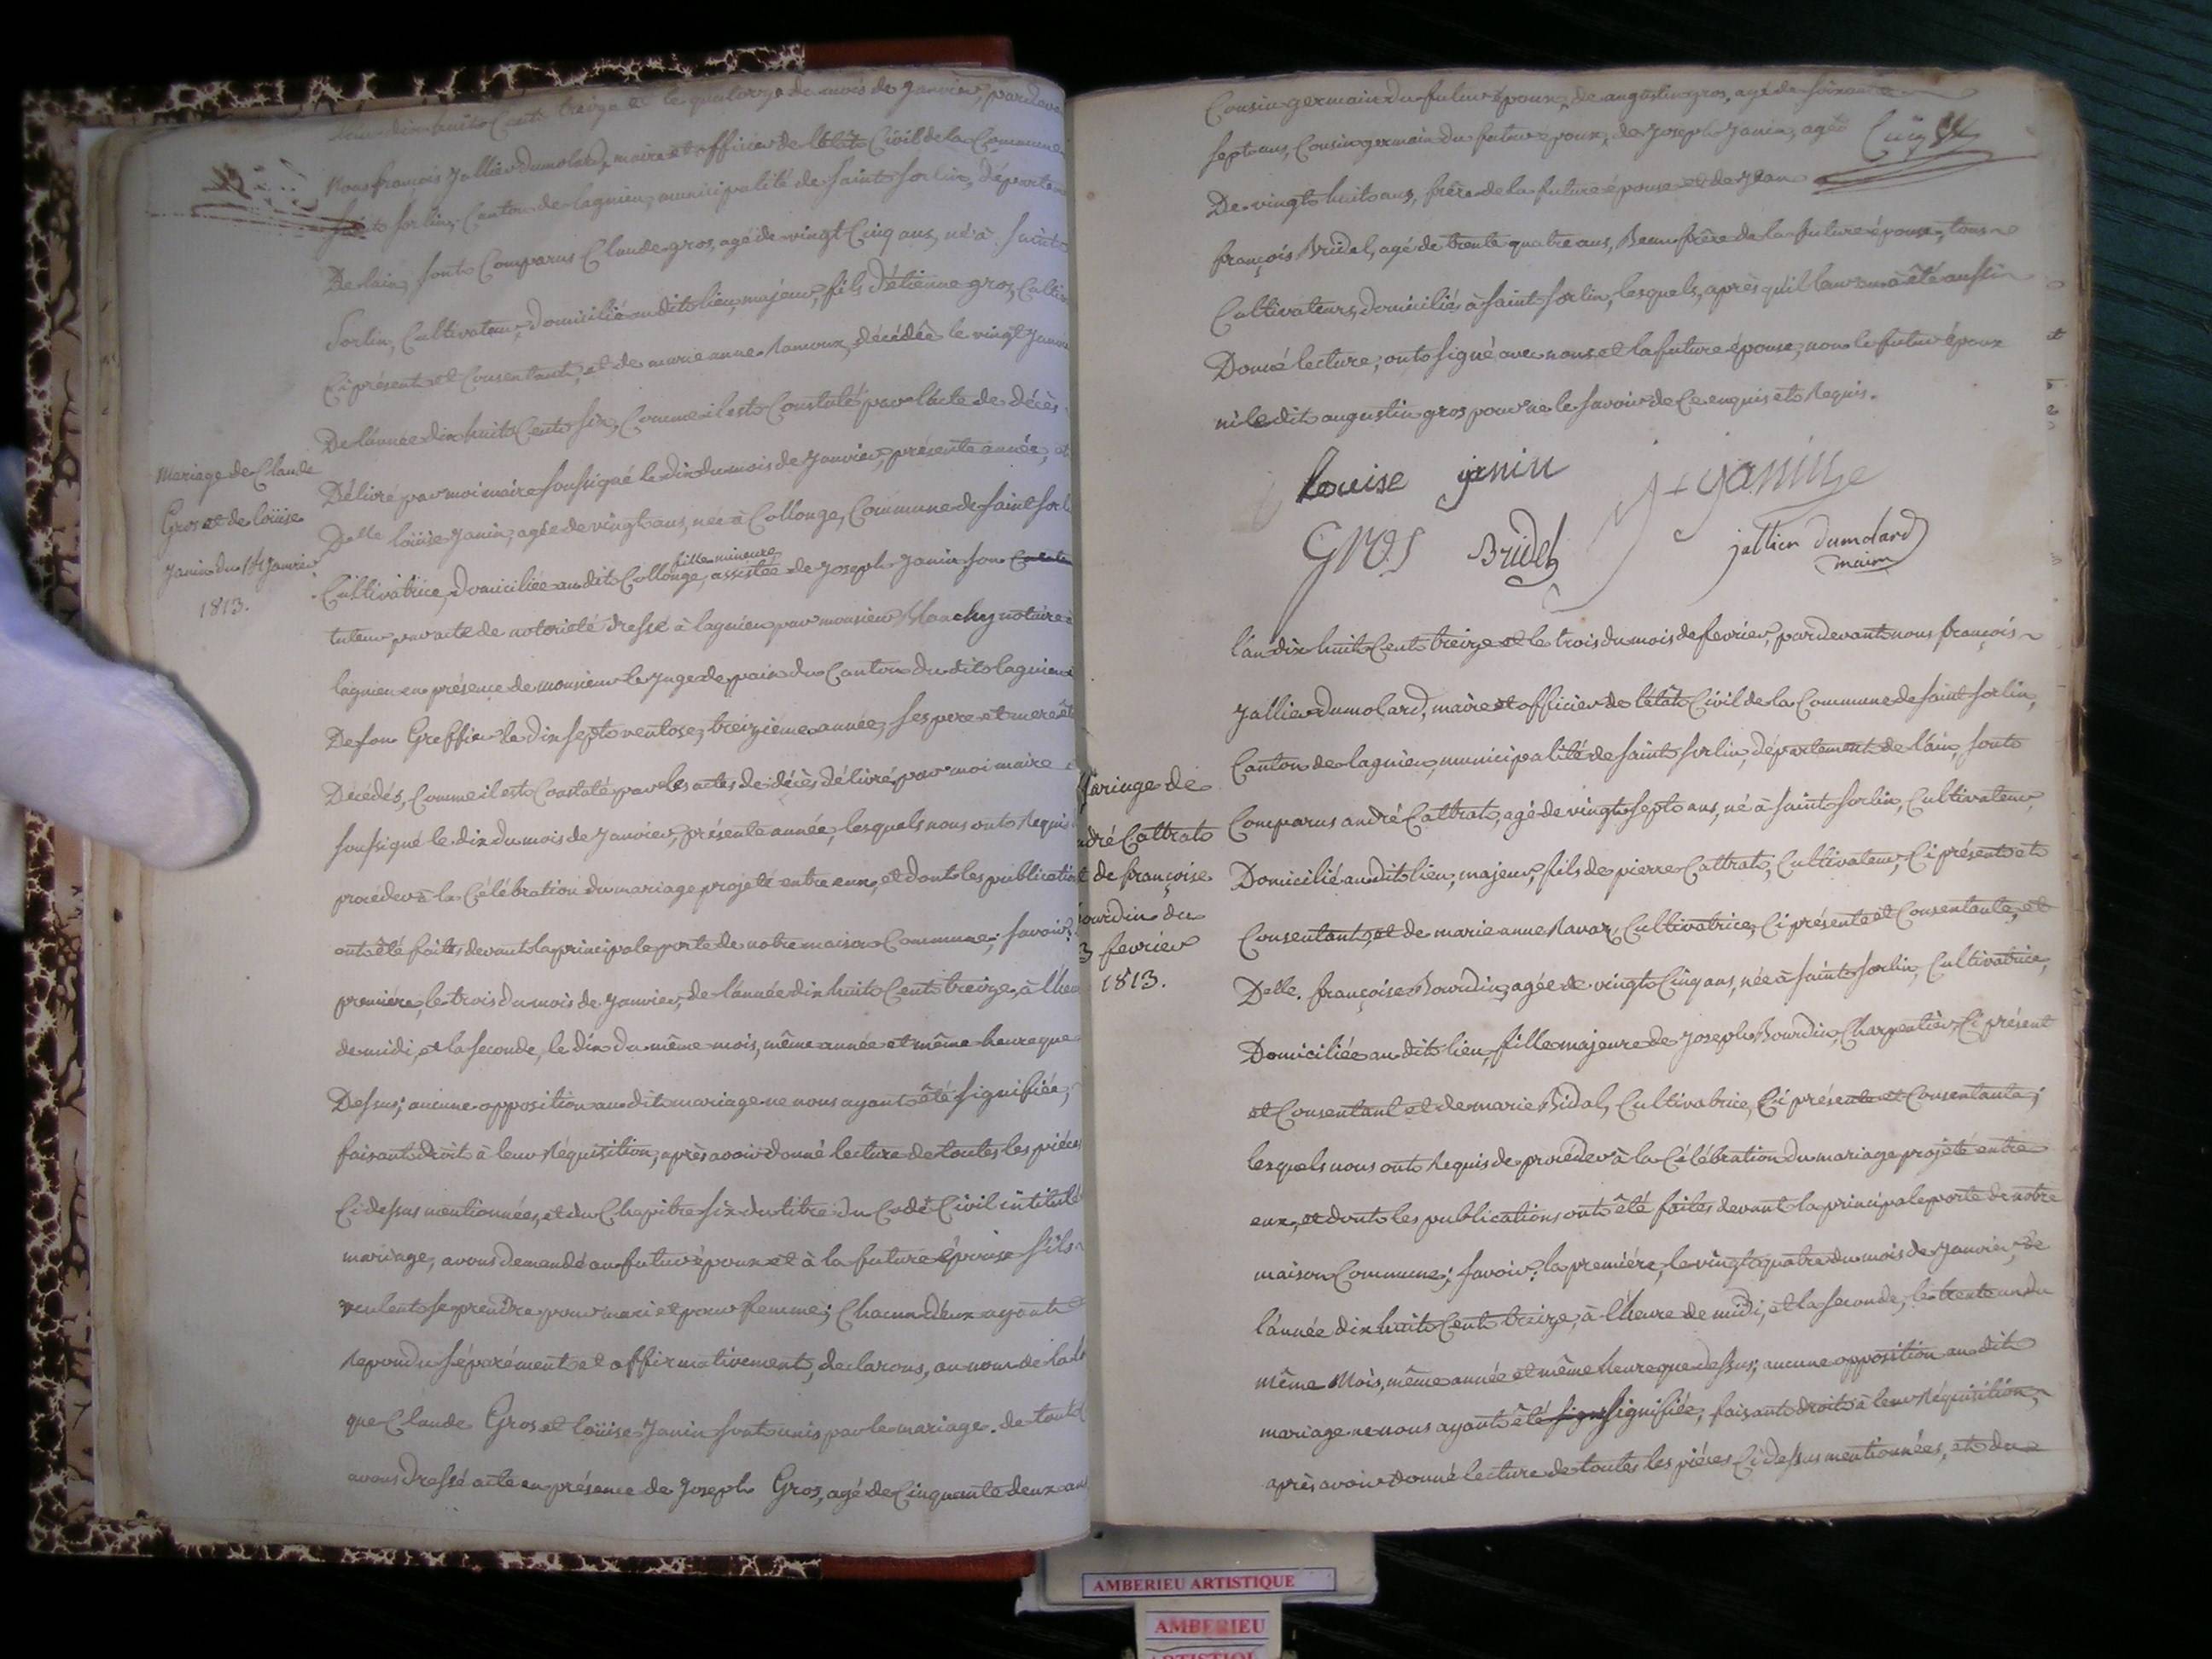 dix huit Cent treize et le quatorze du mois de janvier, pardevant
Nous françois jallier dumolard, maire et officier de l'état Civil de la Commune
sorlin, Canton de lagnieu, municipalité de saint sorlin, départem
De l'ain, sont Comparus Claude gros, agé de vingt Cinq ans, né à saint
sorlin, Cultivateur, domicilié au dit lieu, majeur, fils d'étienne gros, Cultiv
Ci présent et Consentant, et de marie anne Ramoux, décédée le vingt janvie
De l'année dix huit Cent six, Comme il est Constaté par l'acte de décès
Délivré par moi maire soussigné le dix du mois de janvier, présente année, et
Delle loüise janin, agée de vingt ans, née à Collonge, Commune de saint sorl
fille mineure
Cultivatrice, domiciliée au dit Collonge, assistée de joseph janin son
tuteur par acte de notorieté dressé à lagnieu par monsieur notaire à
lagnieu en présence de monsieur le juge de paix du Canton du dit lagnieu
De son Greffier le dix sept ventose, treizieme année, ses pere et mere ét
Décédés, Comme il est Constaté par les actes de décès délivré par moi maire
soussigné le dix du mois de janvier, présente année, lesquels nous ont Requis
procéder à la Célébration du mariage projeté entre eux, et dont les publication
ont été faites devant la principale porte de notre maison Commune; savoir:
première, le trois du mois de janvier, de l'année dix huit Cent treize, à l'heu
de midi, et la seconde, le dix du même mois, même année et même heure que
Dessus; aucune opposition au dit mariage ne nous ayant été signifiée,
faisant droit à leur Réquisition, après avoir donné lecture de toutes les piéces
Ci dessus mentionnées, et du Chapitre six du titre du Code Civil intitulé
mariage, avons demandé au futur époux et à la future épouse s'ils
veulent se prendre pour mari et pour femme; Chacun d'eux ayant
Repondu séparément et affirmativement, declarons, au nom de la l
que Claude Gros et loüise janin sont unis par le mariage. de tout
avons dressé acte en présence de joseph Gros, agé de Cinquante deux ans
Mariage de Claude
Gros et de loüise
janin du 14 janvier
1813.
Cousin germain du futur époux, de augustin gros, agé de soixante
sept ans, Cousin germain du futur époux, de joseph janin, agé
De vingt huit ans, frère de la future épouse et de jean
françois Bridel, agé de trente quatre ans, Beau frère de la future épouse, tous
Cultivateurs, domiciliés à saint sorlin, lesquels, après qu'il leur en a été aussi
Donné lecture, ont signé avec nous et la future épouse, non le futur époux
ni le dit augustin gros pour ne le savoir de Ce enquis et Requis.
louise jenin
GROS Bridel
jallier dumolard
maire
l'an dix huit Cent treize et le trois du mois de fevrier, pardevant nous françois
jallier dumolard, maire et officier de l'état Civil de la Commune de saint sorlin,
Canton de lagnieu, municipalité de saint sorlin, département de l'ain, sont
Comparus andré Cattrat, agé de vingt sept ans, né à saint sorlin, Cultivateur,
Domicilié au dit lieu, majeur, fils de pierre Cattrat, Cultivateur, Ci présent et
Consentant, et de marie anne Ravaz, Cultivatrice, Ci présente et Consentante, et
Delle. françoise Bourdin, agée de vingt Cinq ans, née à saint sorlin, Cultivatrice,
Domiciliée au dit lieu, fille majeure de joseph Bourdin, Charpentier, Ci présent
et Consentant et de marie Bidal, Cultivatrice, Ci présente et Consentante;
lesquels nous ont Requis de procéder à la Célébration du mariage projeté entre
eux, et dont les publications ont été faites devant la principale porte de notre
maison Commune; savoir: la première, le vingt quatre du mois de janvier, de
l'année dix huit Cent treize, à l'heure de midi, et la seconde, le trente un du
même Mois, même année et même heure que dessus; aucune opposition au dit
mariage ne nous ayant été signifiée, faisant droit à leur Réquisition,
après avoir donné lecture de toutes les piéces Ci dessus mentionnées, et du
ariage de
dré Cattrat
de françoise
ourdin du
3 fevrier
1813.
AMBERIEU ARTISTIQUE
AMBERIEU
ARTISTIQUE